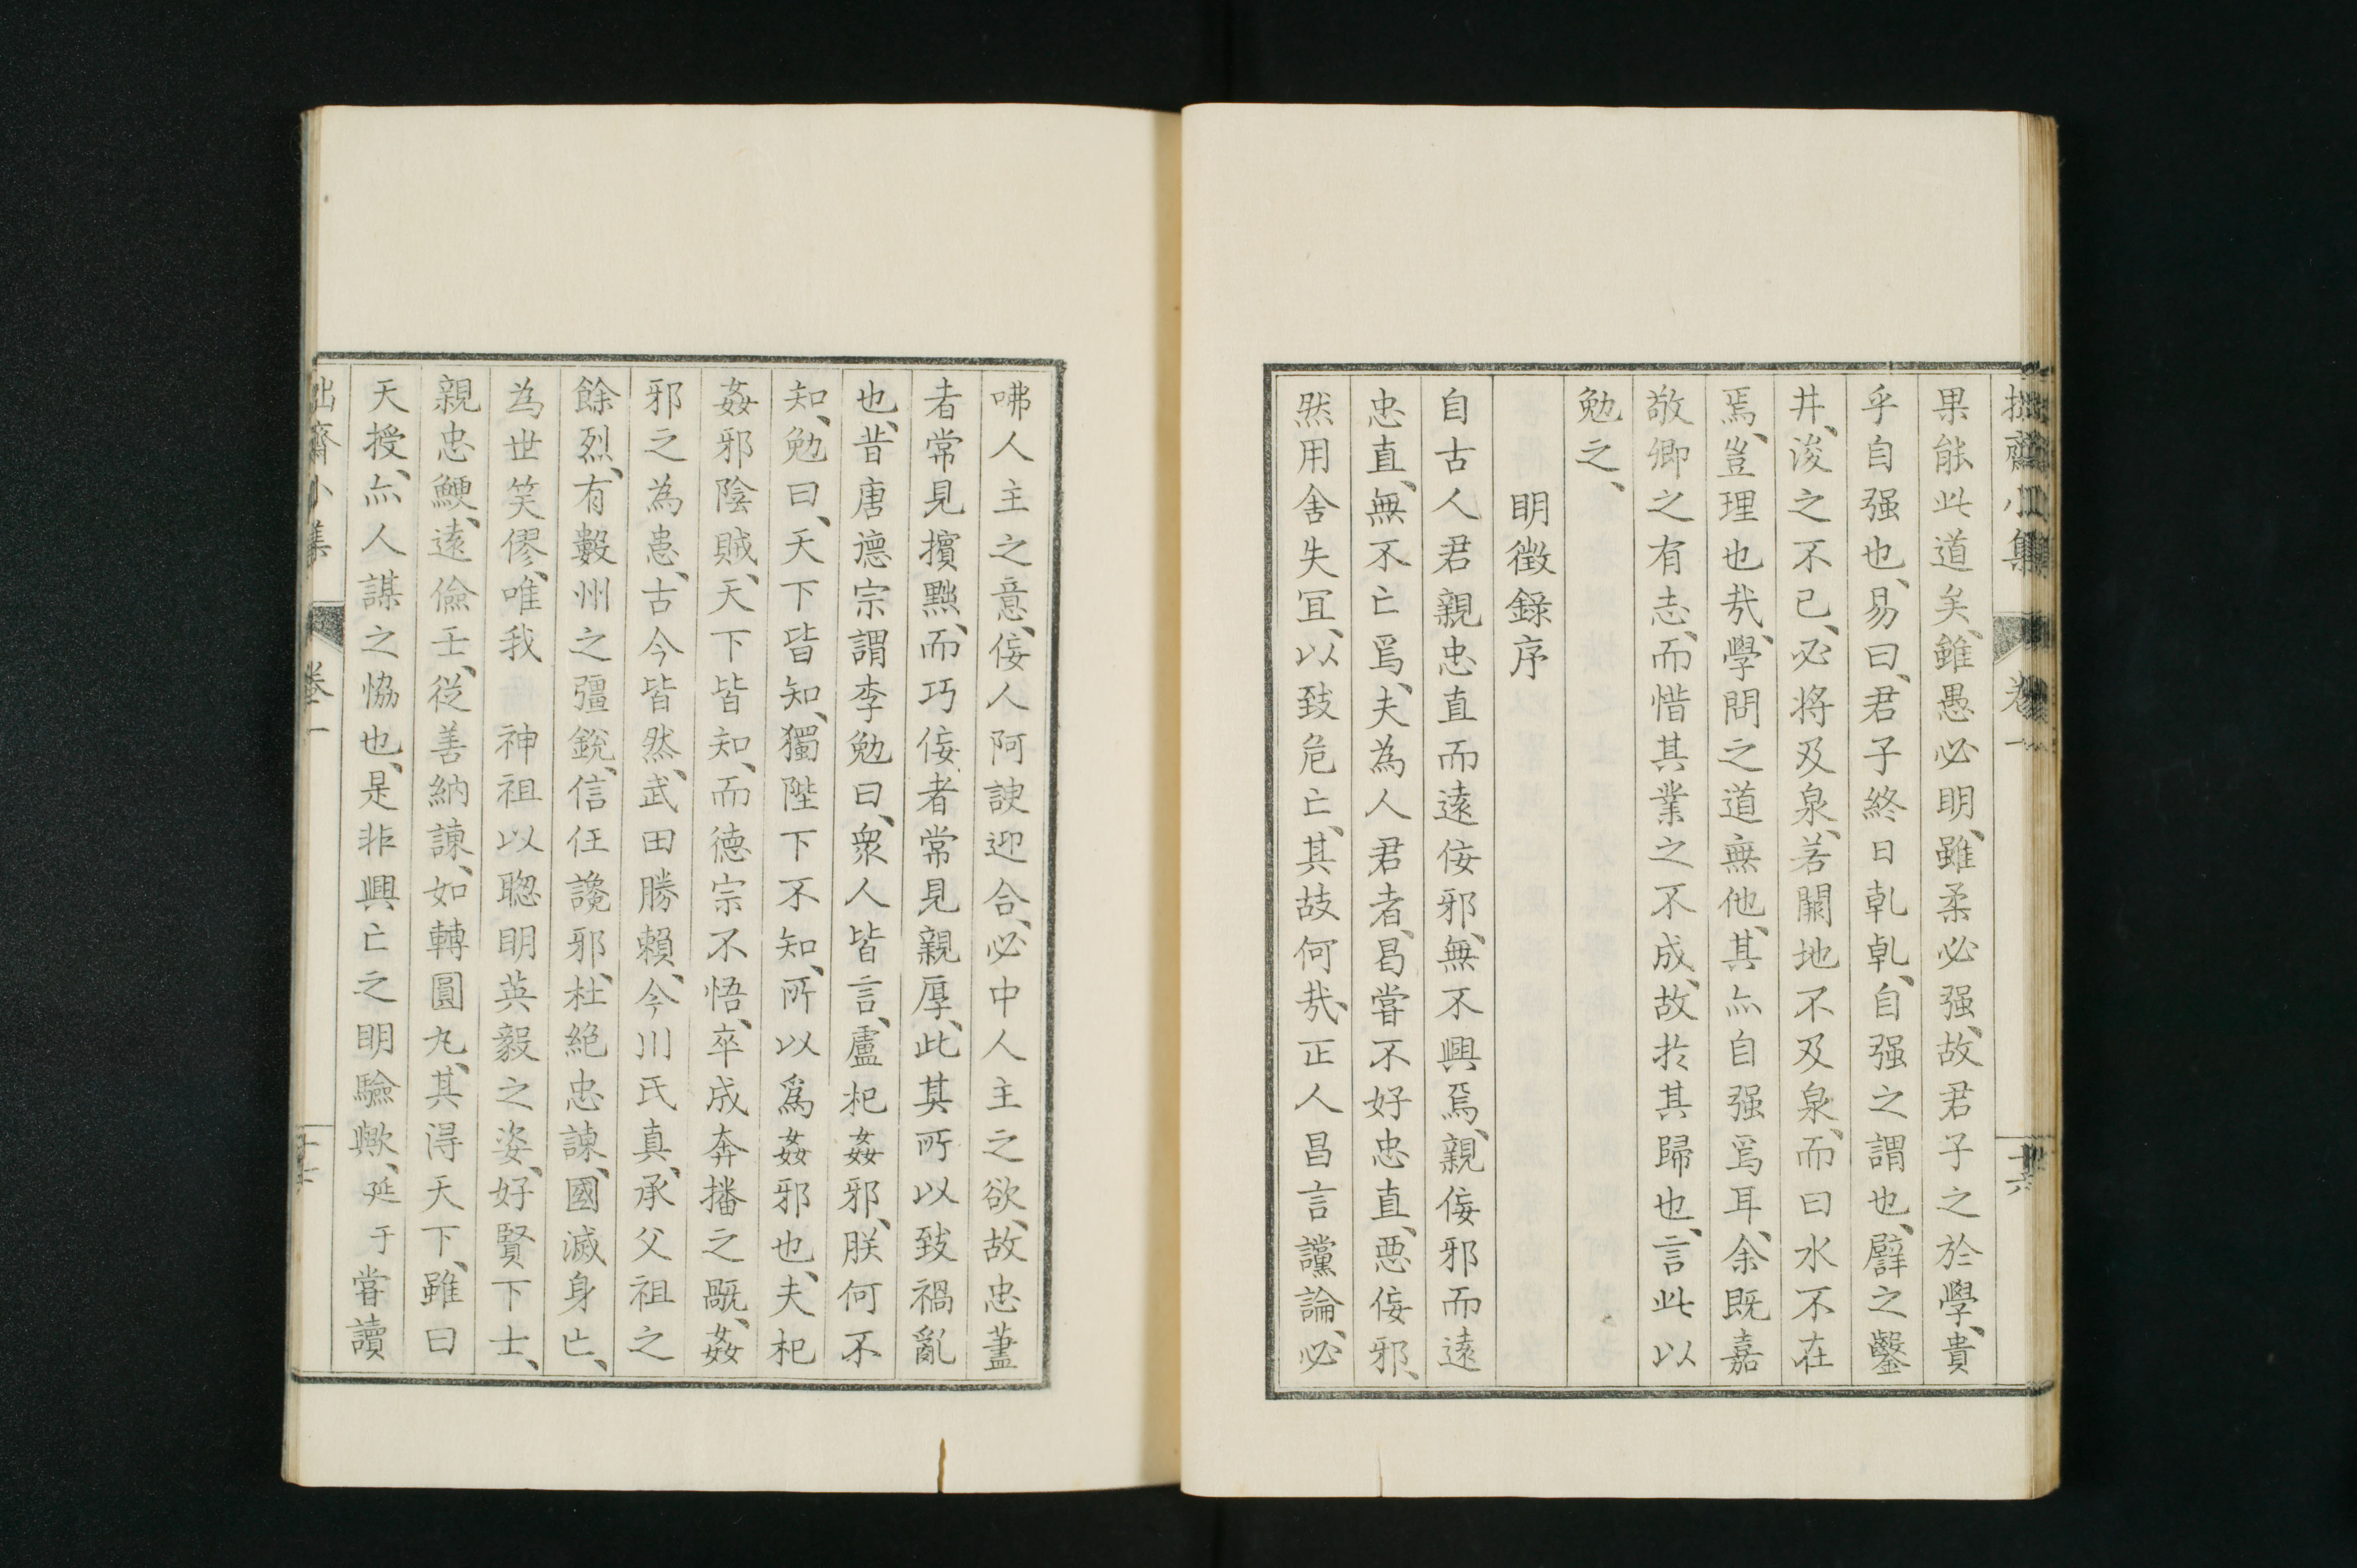 拙齋小集 卷一 十六
果能此道矣、雖愚必明、雖柔必强、故君子之於學、貴
乎自强也、易曰、君子終日乹乹、自强之謂也、譬之鑿
井、浚之不已、必将及泉、若闕地不及泉、而曰水不在
焉、豈理也㦲、學問之道無他、其亦自强焉耳、余既嘉
敬卿之有志、而惜其業之不成、故扵其歸也、言此以
勉之、
明徴錄序
自古人君親忠直而遠佞邪、無不興焉、親佞邪而遠
忠直、無不亡焉、夫為人君者、曷嘗不好忠直、惡佞邪、
然用舍失冝、以致危亡、其故何㦲、正人昌言讜論、必
咈人主之意、佞人阿諛迎合、必中人主之欲、故忠藎
者常見擯黜、而巧佞者常見親厚、此其所以致禍亂
也、昔唐德宗謂李勉曰、衆人皆言、盧杞姦邪、朕何不
知、勉曰、天下皆知、獨陛下不知、所以爲姦邪也、夫杞
姦邪陰賊、天下皆知、而德宗不悟、卒成奔播之厩、姦
邪之為患、古今皆然、武田勝賴、今川氏真、承父祖之
餘烈、有數州之彊銳、信任讒邪、杜絶忠諫、國滅身亡、
為世笑僇、唯我 神祖以聰明英毅之姿、好賢下士、
親忠鯁、遠儉壬、從善納諫、如轉圓丸、其得天下、雖曰
天授、亦人謀之恊也、是非興亡之明驗歟、延于嘗讀
拙齋小集 卷一 十七